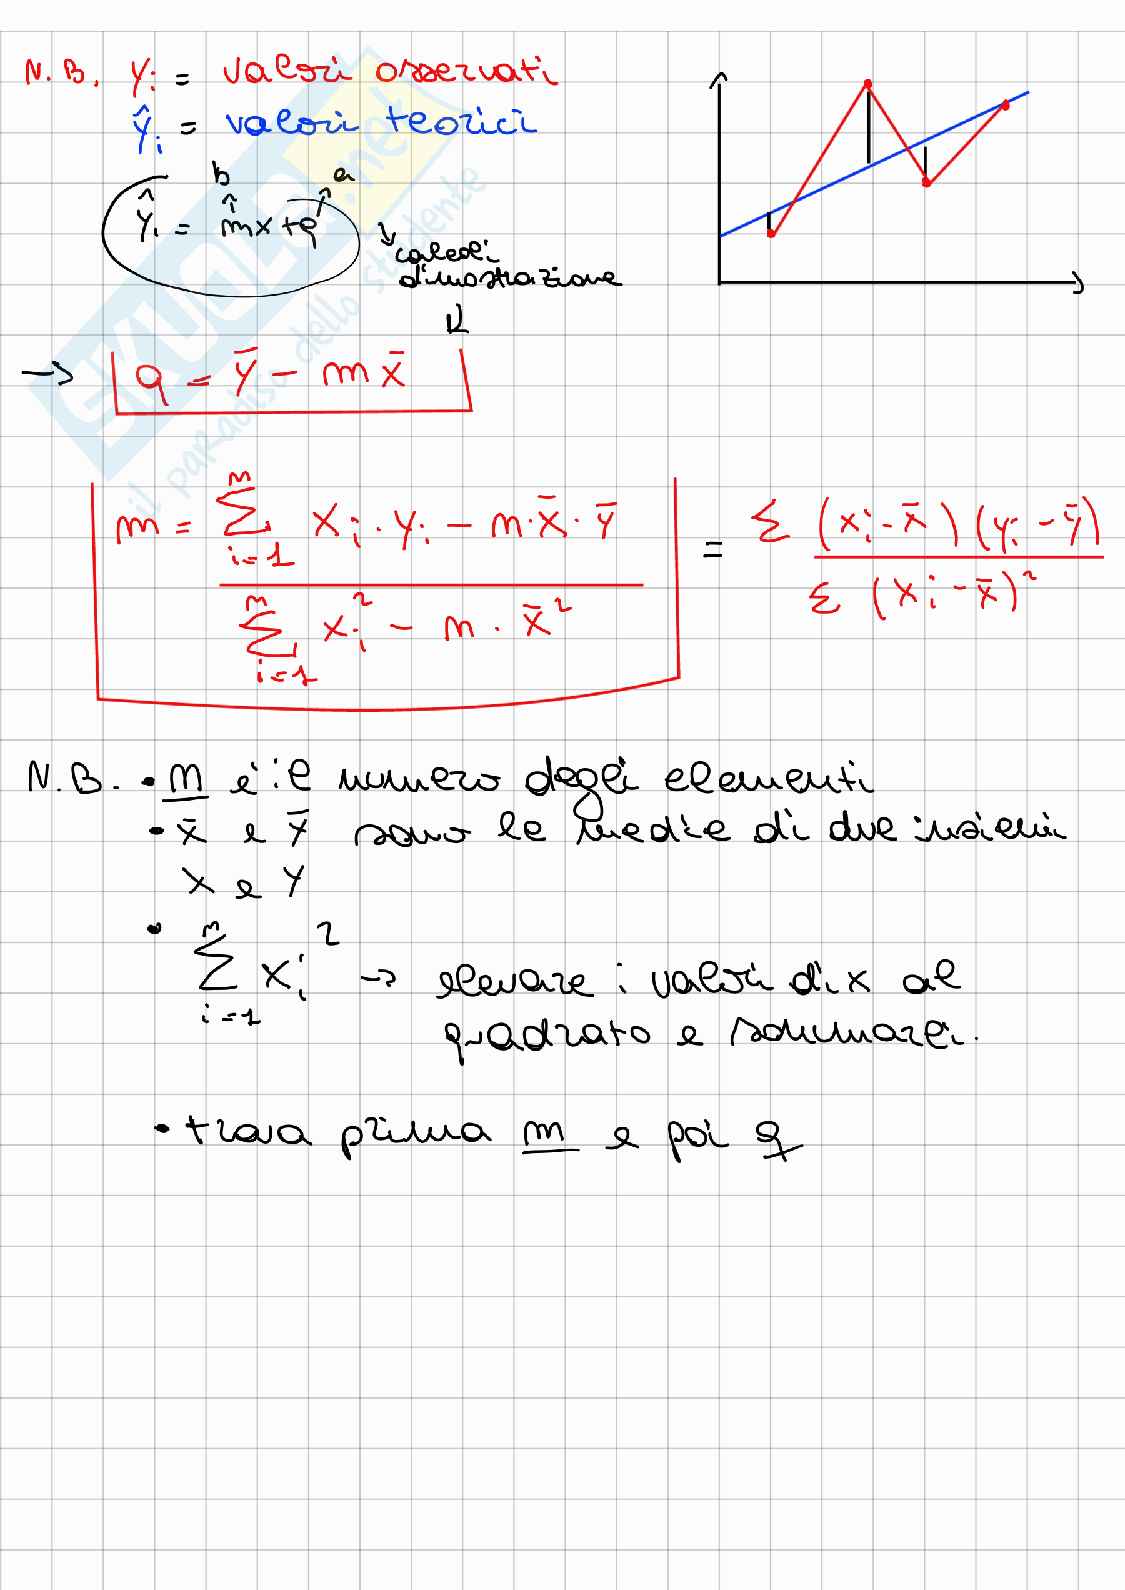 N.B. yi = valori osservati
ŷi = valori teorici
b a
ŷi = mx + q
calcoli
dimostrazione
→ q = ȳ - m x̄
m = ∑ⁿi=1 xi · yi - n · x̄ · ȳ / ∑ⁿi=1 xi² - n · x̄² = ∑ (xi - x̄) (yi - ȳ) / ∑ (xi - x̄)²
N.B. • n è il numero degli elementi
• x̄ e ȳ sono le medie di due insiemi
x e y
• ∑ⁿi=1 xi² → elevare i valori di x al
quadrato e sommarli.
• trova prima m e poi q
SKUOLA.net
il paradiso dello studente